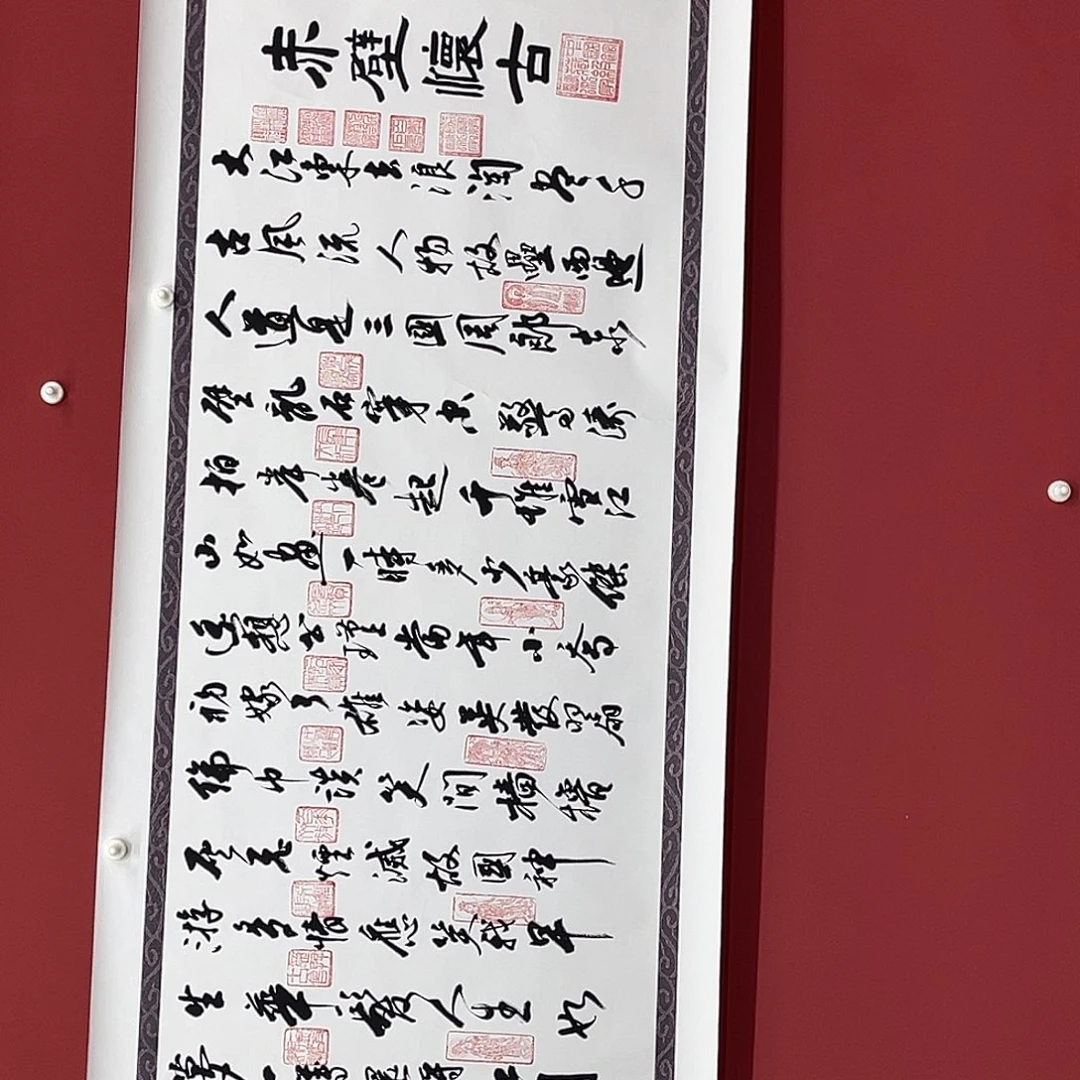 赤壁懷古
大江東去浪淘盡千
古風流人物故壘西邊
人道是三國周郎赤
壁亂石穿空驚濤
拍岸卷起千堆雪江
山如畫一時多少豪傑
遙想公瑾當年小喬
初嫁了雄姿英發羽扇
綸巾談笑間檣櫓
灰飛煙滅故國神
游多情應笑我早
生華髮人生如
夢一